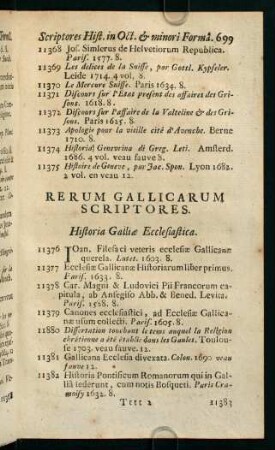 Scriptores Hist. in Oct. & minori Formâ. 699
11368 Jos. Simlerus de Helvetiorum Republica.
Paris. 1577. 8.
11369 Les delices de la Suisse, par Gotel. Kypseler.
Leide 1714. 4 vol. 8.
11370 Le Mercure Suisse. Paris 1634. 8.
11371 Discours sur l'Etat present des affaires des Gri-
sons. 1618. 8.
11372 Discours sur l'affaire de la Valteline & des Gri-
sons. Paris 1625. 8.
11373 Apologie pour la vieille cité d'Avenche. Berne
1710. 8.
11374 Historia Genevrina di Greg. Leti. Amsterd.
1686. 4 vol. veau fauve 8.
11375 Histoire de Geneve, par Jac. Spon. Lyon 1682.
2 vol. en veau 12.
RERUM GALLICARUM
SCRIPTORES.
Historia Galliæ Ecclesiastica.
11376 JOan. Filesaci veteris ecclesiæ Gallicanæ
querela. Lutet. 1603. 8.
11377 Ecclesiæ Gallicanæ Historiarum liber primus.
Paris. 1633. 8.
11378 Car. Magni & Ludovici Pii Francorum ca-
pitula, ab Ansegiso Abb. & Bened. Levita.
Paris. 1588. 8.
11379 Canones ecclesiastici, ad Ecclesiæ Gallica-
næ usum collecti. Paris. 1605. 8.
11880 Dissertation touchant le tems auquel la Religion
chrêtienne a été établie dans les Gaules. Toulou-
se 1703. veau fauve. 12.
11381 Gallicana Ecclesia divexata. Colon. 1690 veau
fauve 12.
11382 Historia Pontificum Romanorum qui in Gal-
liâ sederunt, cum notis Bosqueti. Paris Cra-
moisy 1632. 8.
Tttt 2 11383